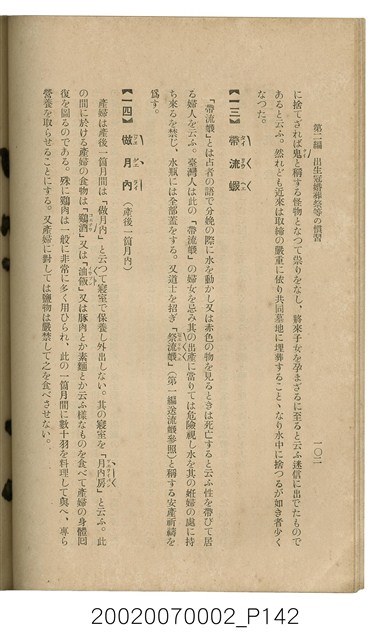 第二編 出生冠婚葬祭等の慣習
一〇二
に捨てざれば鬼と稱する怪物となつて祟りをなし、將來子女を孕まざるに至ると云ふ迷信に出でたもので
あると云ふ。然れども近來は取締の嚴重に依り共同墓地に埋葬すること、なり水中に捨つるが如き者少く
なつた。
【一三】 帶流蝦
「帶流蝦」とは占者の語で分娩の際に水を動かし又は赤色の物を見るときは死亡すると云ふ性を帶びて居
る婦人を云ふ。臺灣人は此の「帶流蝦」の婦女を忌み其の出產に當りては危險視し水を其の姙婦の處に持
ち來るを禁じ、水瓶には全部蓋をする。又道士を招ぎ「祭流蝦」(第一編送流蝦參照)と稱する安產祈禱を
爲す。
【一四】 做月內 (產後一箇月內)
產婦は產後一箇月間は「做月內」と云つて寢室で保養し外出しない。其の寢室を「月內房」と云ふ。此
の間に於ける產婦の食物は「鷄酒」又は「油飯」又は豚肉とか素麵とか云ふ樣なものを食べて產婦の身體囘
復を圖るのである。殊に鷄肉は一般に非常に多く用ひられ、此の一箇月間に數十羽を料理して與へ、專ら
營養を取らせることにする。又產婦に對しては鹽物は嚴禁して之を食べさせない。
20020070002_P142